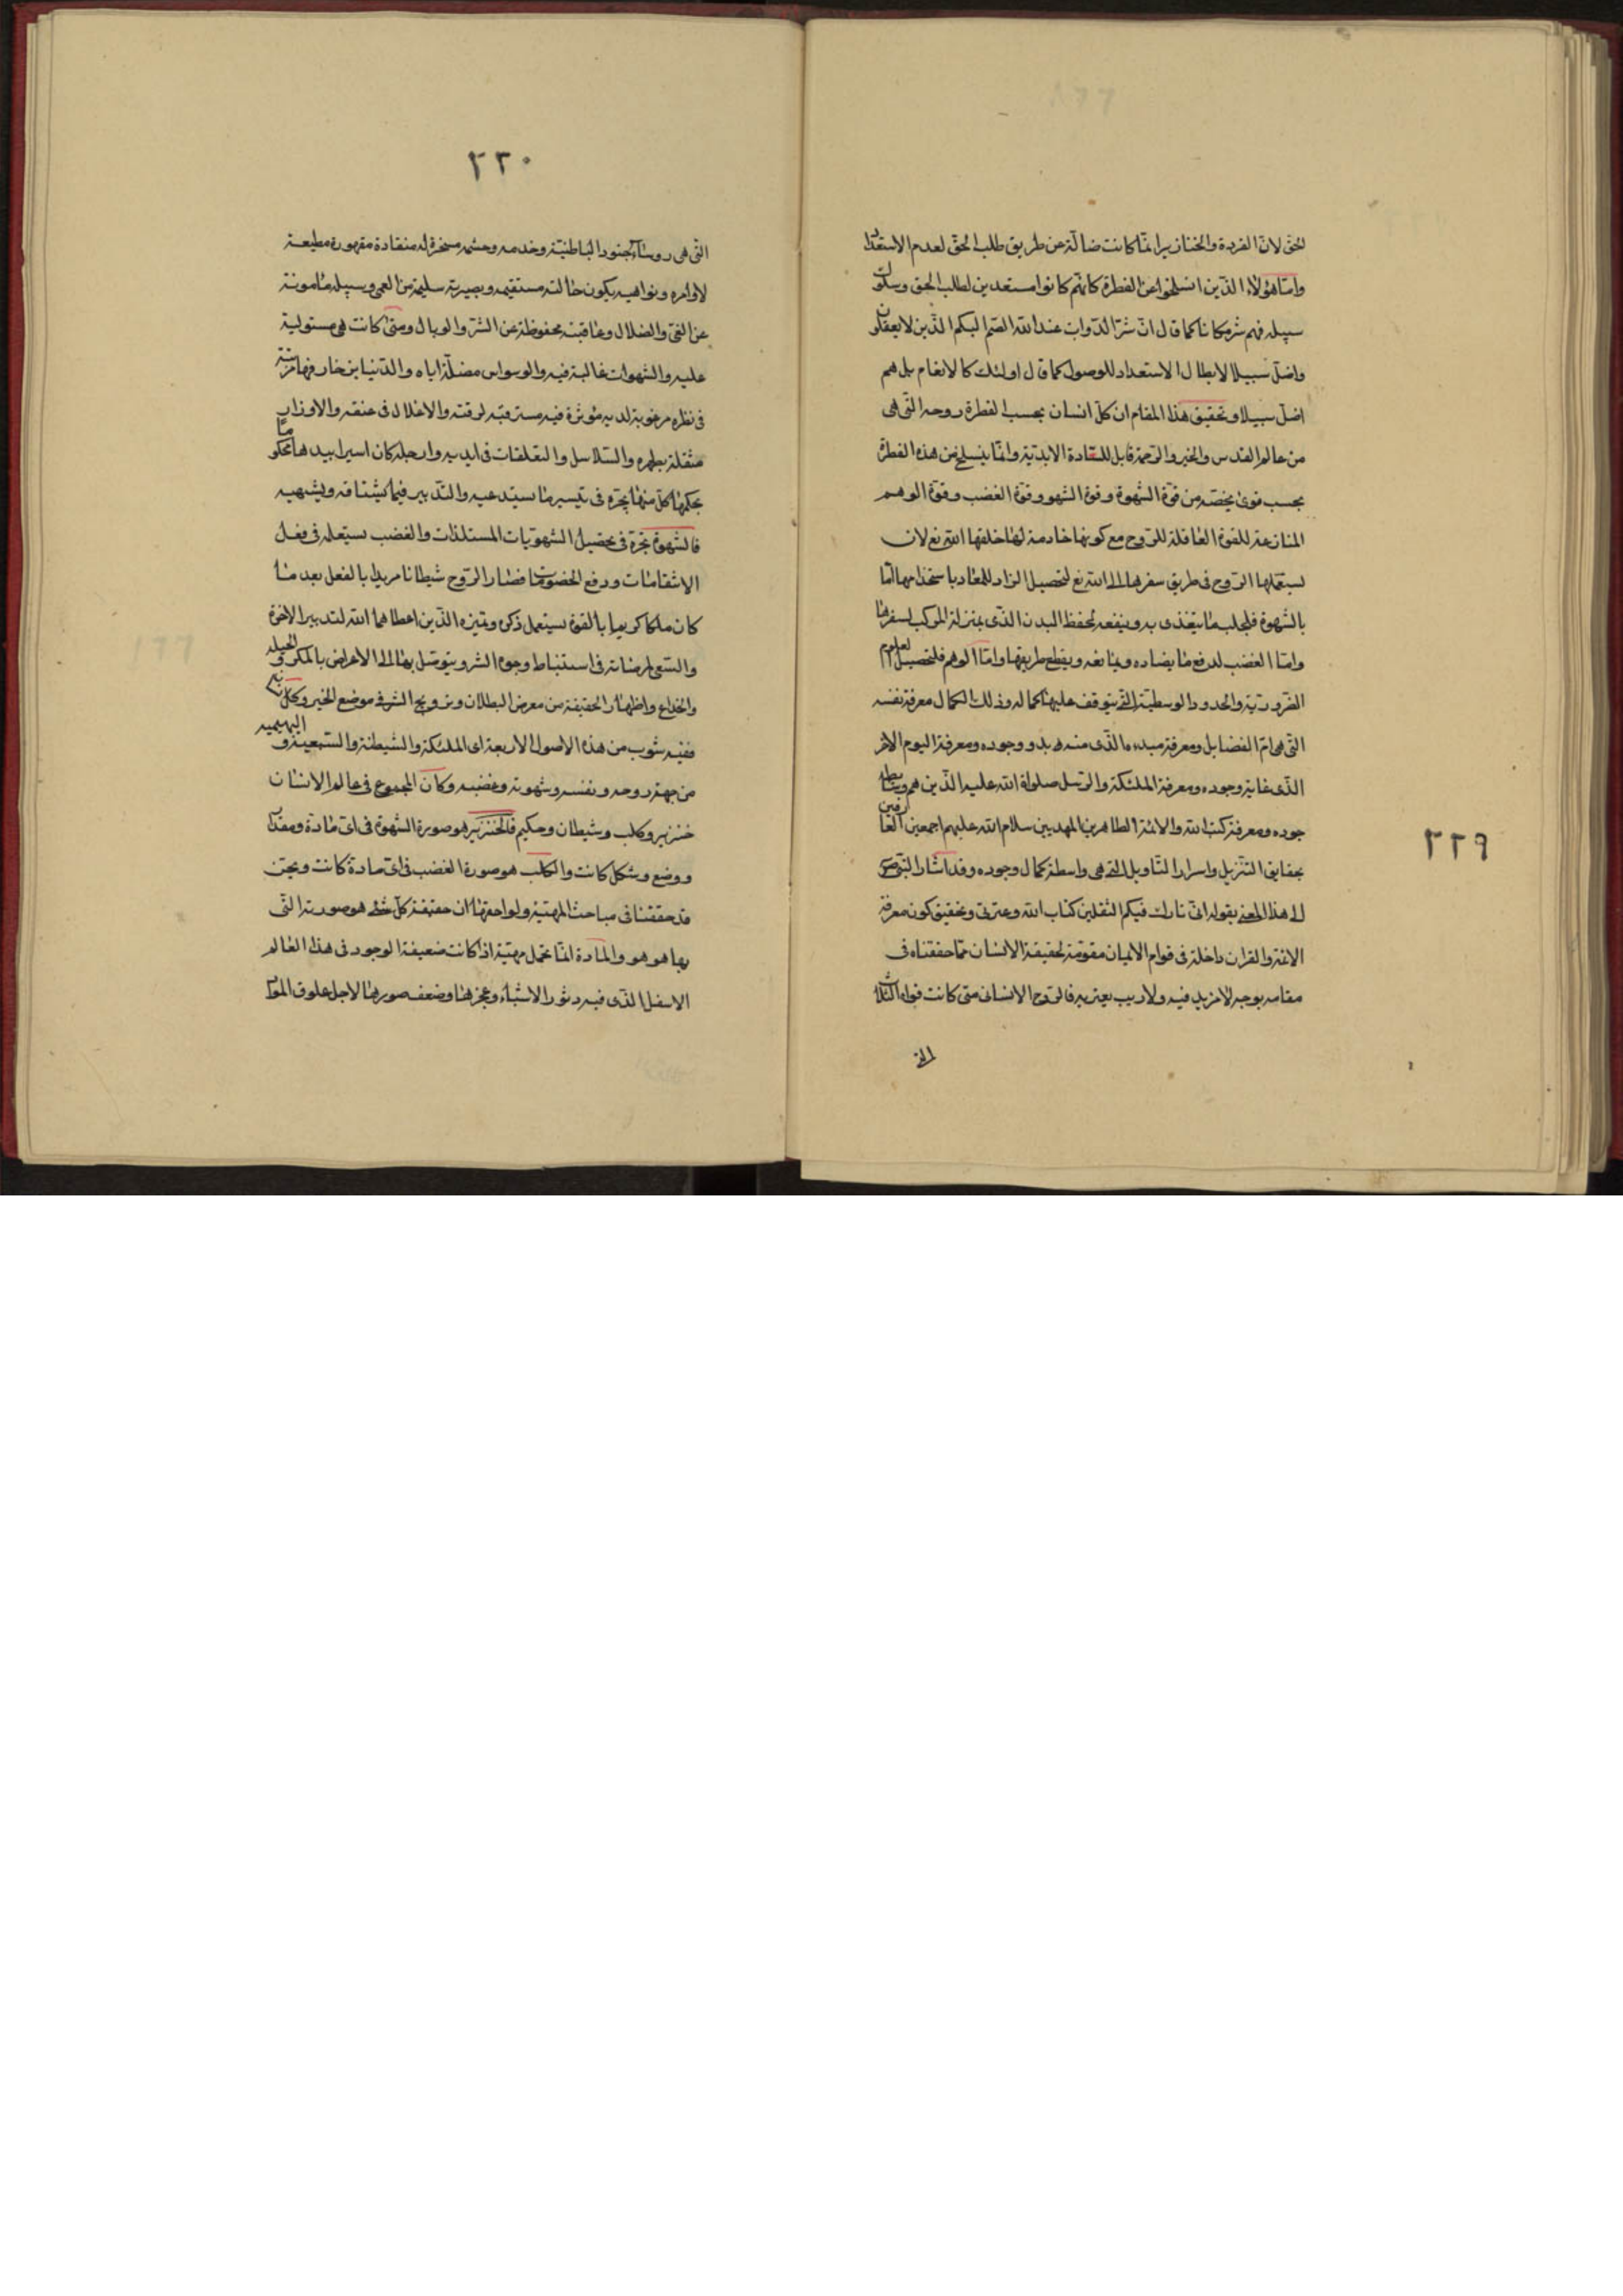 الحق لان القردة والخنازير انما كانت ضالة عن طريق طلب الحق لعدم الاستعداد
واما هؤلاء الذين انسلخوا عن الفطرة كانهم كانوا مستعدين لطلب الحق وسلوك
سبيله فهم شر مكانا كما قال ان شر الدواب عند الله الصم البكم الذين لا يعقلون
واضل سبيلا لابطال الاستعداد للوصول كما قال اولئك كالانعام بل هم
اضل سبيلا وتحقيق هذا المقام ان كل انسان بحسب الفطرة روحه التى هى
من عالم القدس والخير والرحمة قابل للسعادة الابدية وانما ينسلخ عن هذه الفطرة
بحسب قوى يخصه من قوة الشهوة وقوة الشهو وقوة الغضب وقوة الوهم
المنازعة للقوة العاقلة للروح مع كونها خادمة لها خلقها الله تع لان
يستعملها الروح فى طريق سفرها الى الله تع لتحصيل الزاد للمعاد باستخدامها اما
بالشهوة فلجلب ما يتغذى به وينفعه لحفظ البدن الذى بمنزلة المركب لسفرها
واما الغضب لدفع ما يضاده ويمانعه ويقطع طريقها واما الوهم فلتحصيل العلوم
الضرورية والحدود الوسطية التى يتوقف عليها كماله وذلك الكمال معرفة نفسه
التى هى ام الفضايل ومعرفة مبدءه الذى منه بدو وجوده ومعرفة اليوم الاخر
الذى غاية وجوده ومعرفة الملئكة والرسل صلوات الله عليه الذين هم وسائط
جوده ومعرفة كتب الله والائمة الطاهرين المهديين سلام الله عليهم اجمعين العارفين
بحقايق التنزيل واسرار التاويل التى هى واسطة كمال وجوده وقد اشار النبى ص
الى هذا المعنى بقوله انى تارك فيكم الثقلين كتاب الله وعترتى وتحقيق كون معرفة
الائمة والقران داخلة فى قوام الايمان مقومة لحقيقة الانسان مما حققناه فى
مقامه بوجه لا مزيد فيه ولا ريب يعتريه فالروح الانسانى متى كانت قواه الثلاث
التى
٢٢٩
٢٣٠
التى هى روساء لجنود الباطنية وخدمه وحشمه مسخرة له منقادة مقهورة مطيعة
لاوامره ونواهيه يكون حالته مستقيمه وبصيرته سليمة من العمى وسبيله مامونة
عن الغى والضلال وعاقبته محفوظة عن الشر والوبال ومتى كانت هى مستولية
عليه والشهوات غالبة فيه والوسواس مضلة اياه والدنيا بزخارفها مزينة
فى نظره مرغوبة لديه مؤثرة فيه مسترقبه لرقته والاغلال فى عنقه والاوزار
مثقلة بظهره والسلاسل والتعلقات فى ايديه وارجله كان اسيرا بيدها محكوما
بحكمها كل منها يجره فى تيسير ما يستدعيه والتدبير فيما يشتاقه ويشتهيه
فالشهوة تجره فى تحصيل الشهويات المستلذات والغضب يستعمله فى فعل
الانتقامات ودفع الخصومات فصار الروح شيطانا مريدا بالفعل بعد ما
كان ملكا كريما بالقوة يستعمل ذكره وتميزه الذين اعطاهما الله لتدبير الاخرة
والسعى لمرضاته فى استنباط وجوه الشر ويتوسل بها الى الاعراض بالمكر والحيله
والخداع واظهار الحقيقة من معرض البطلان وترويج الشر فى موضع الخير وكل
ففيه شوب من هذه الاصول الاربعة اى الملئكة والشيطنة والسبعية والبهيميه
من جهة روحه ونفسه وشهوته وغضبه وكان المجموع فى عالم الانسان
خنزير وكلب وشيطان وحكيم فالخنزير هو صورة الشهوة فى اى مادة ومقدار
ووضع وشكل كانت والكلب هو صورة الغضب فى اى مادة كانت ونحن
قد حققنا فى مباحث المهية ولواحقها ان حقيقة كل شئ هو صورته التى
بها هو هو والمادة انما تحمل مهية اذا كانت ضعيفة الوجود فى هذا العالم
الاسفل الذى فيه دثور الاشياء وعجزها وضعف صورها لاجل علوق المواد